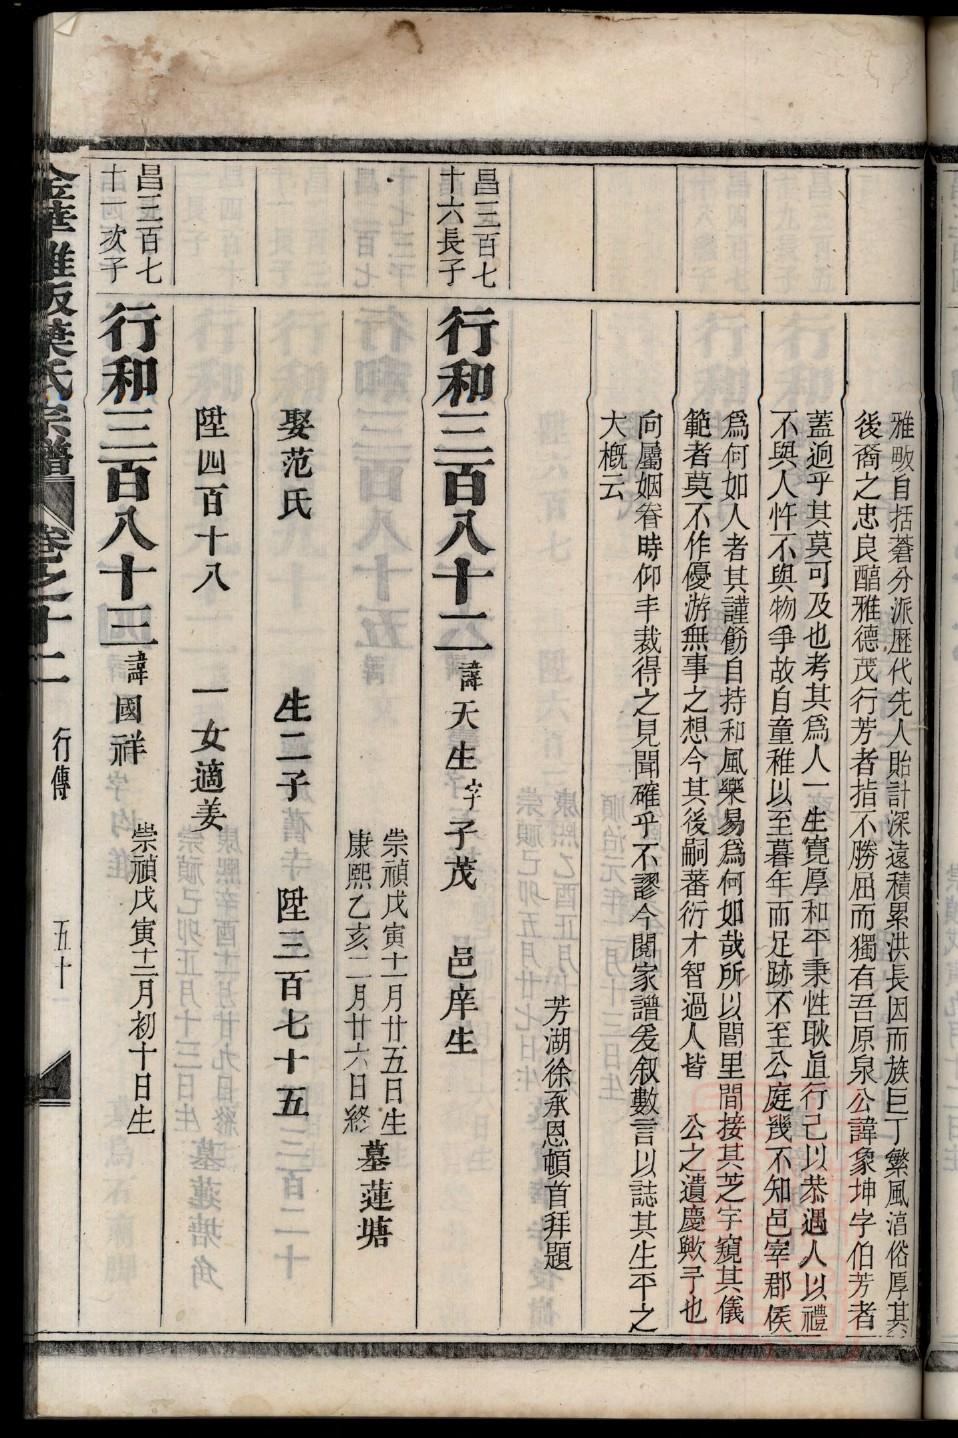 雅畈自括蒼分派歷代先人貽計深遠積累洪長因而族巨丁繁風湻俗厚其
後裔之忠良醕雅德茂行芳者指不勝屈而獨有吾原泉公諱象坤字伯芳者
蓋迥乎其莫可及也考其爲人一生寬厚和平秉性耿直行己以恭遇人以禮
不與人忤不與物爭故自童稚以至暮年而足跡不至公庭幾不知邑宰郡侯
爲何如人者其謹飭自持和風樂易爲何如哉所以閭里間接其芝宇窺其儀
範者莫不作優游無事之想今其後嗣蕃衍才智過人皆 公之遺慶歟予也
向屬姻眷時仰丰裁得之見聞確乎不謬今閱家譜爰叙數言以誌其生平之
大概云
芳湖徐承恩頓首拜題
昌三百七
十六長子
行和三百八十二 諱天生 字子茂 邑庠生
崇禎戊寅十一月廿五日生
康熙乙亥二月廿六日終
墓蓮塘
娶范氏 生二子 陞三百七十五
陞四百十八 一女適姜
昌三百七
十一次子
行和三百八十三 諱國祥 崇禎戊寅十二月初十日生
金華雅畈葉氏宗譜 卷之十二 行傳 五十